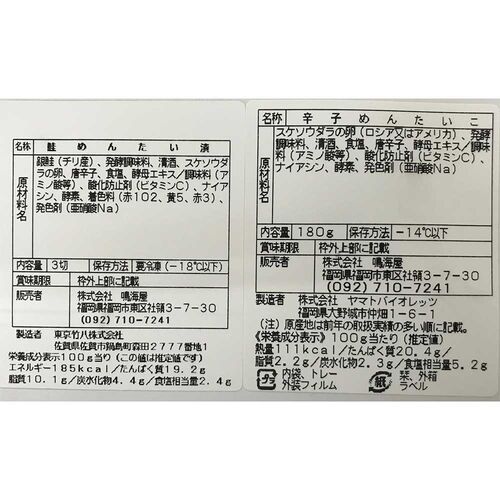 名称 鮭めんたい漬
原材料名
銀鮭(チリ産)、発酵調味料、清酒、スケソウダ
ラの卵、唐辛子、食塩、酵母エキス/調味料
(アミノ酸等)、酸化防止剤(ビタミンC)、ナイア
シン、酵素、着色料(赤102、黄5、赤3)、
発色剤(亜硝酸Na)
内容量 3切 保存方法 要冷凍(-18℃以下)
賞味期限 枠外上部に記載
販売者 株式会社 鳴海屋
福岡県福岡市東区社領3-7-30
(092)710-7241
製造者: 東京竹八株式会社
佐賀県佐賀市鍋島町森田2777番地1
栄養成分表示100g当り(この値は推定値です)
エネルギー185kcal/たんぱく質19.2g
脂質10.1g/炭水化物4.4g/食塩相当2.4g
名称 辛子めんたいこ
原材料名
スケソウダラの卵(ロシア又はアメリカ)、発酵
調味料、清酒、食塩、唐辛子、酵母エキス/調味
料(アミノ酸等)、酸化防止剤(ビタミンC)、
ナイアシン、酵素、発色剤(亜硝酸Na)
内容量 180g 保存方法 -14℃以下
賞味期限 枠外上部に記載
販売者 株式会社 鳴海屋
福岡県福岡市東区社領3-7-30
(092)710-7241
製造者: 株式会社 ヤマトバイオレッツ
福岡県大野城市仲畑1-6-1
(注)原産地は前年の取扱実績の多い順に記載。
《栄養成分表示》100g当たり(推定値)
熱量111kcal/たんぱく質20.4g/
脂質2.2g/炭水化物2.3g/食塩相当5.2g
プラ 内袋、トレー
外装フィルム
紙 栞、外箱
ラベル